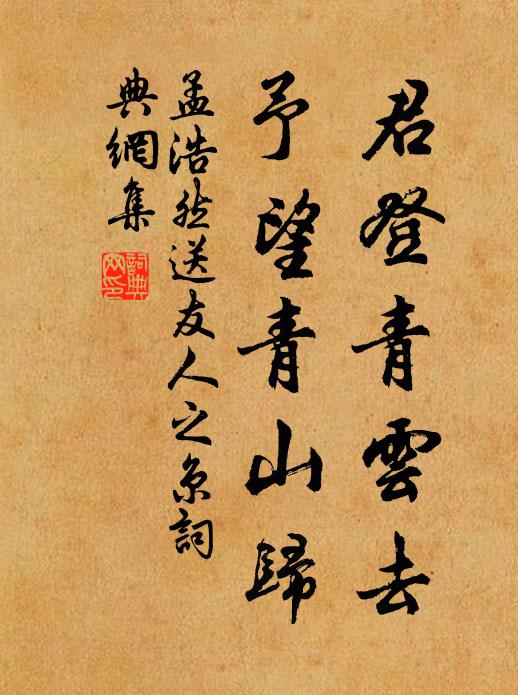 君登青雲去
予望青山歸
孟浩然送友人之京詞
典網集
詞典
网印